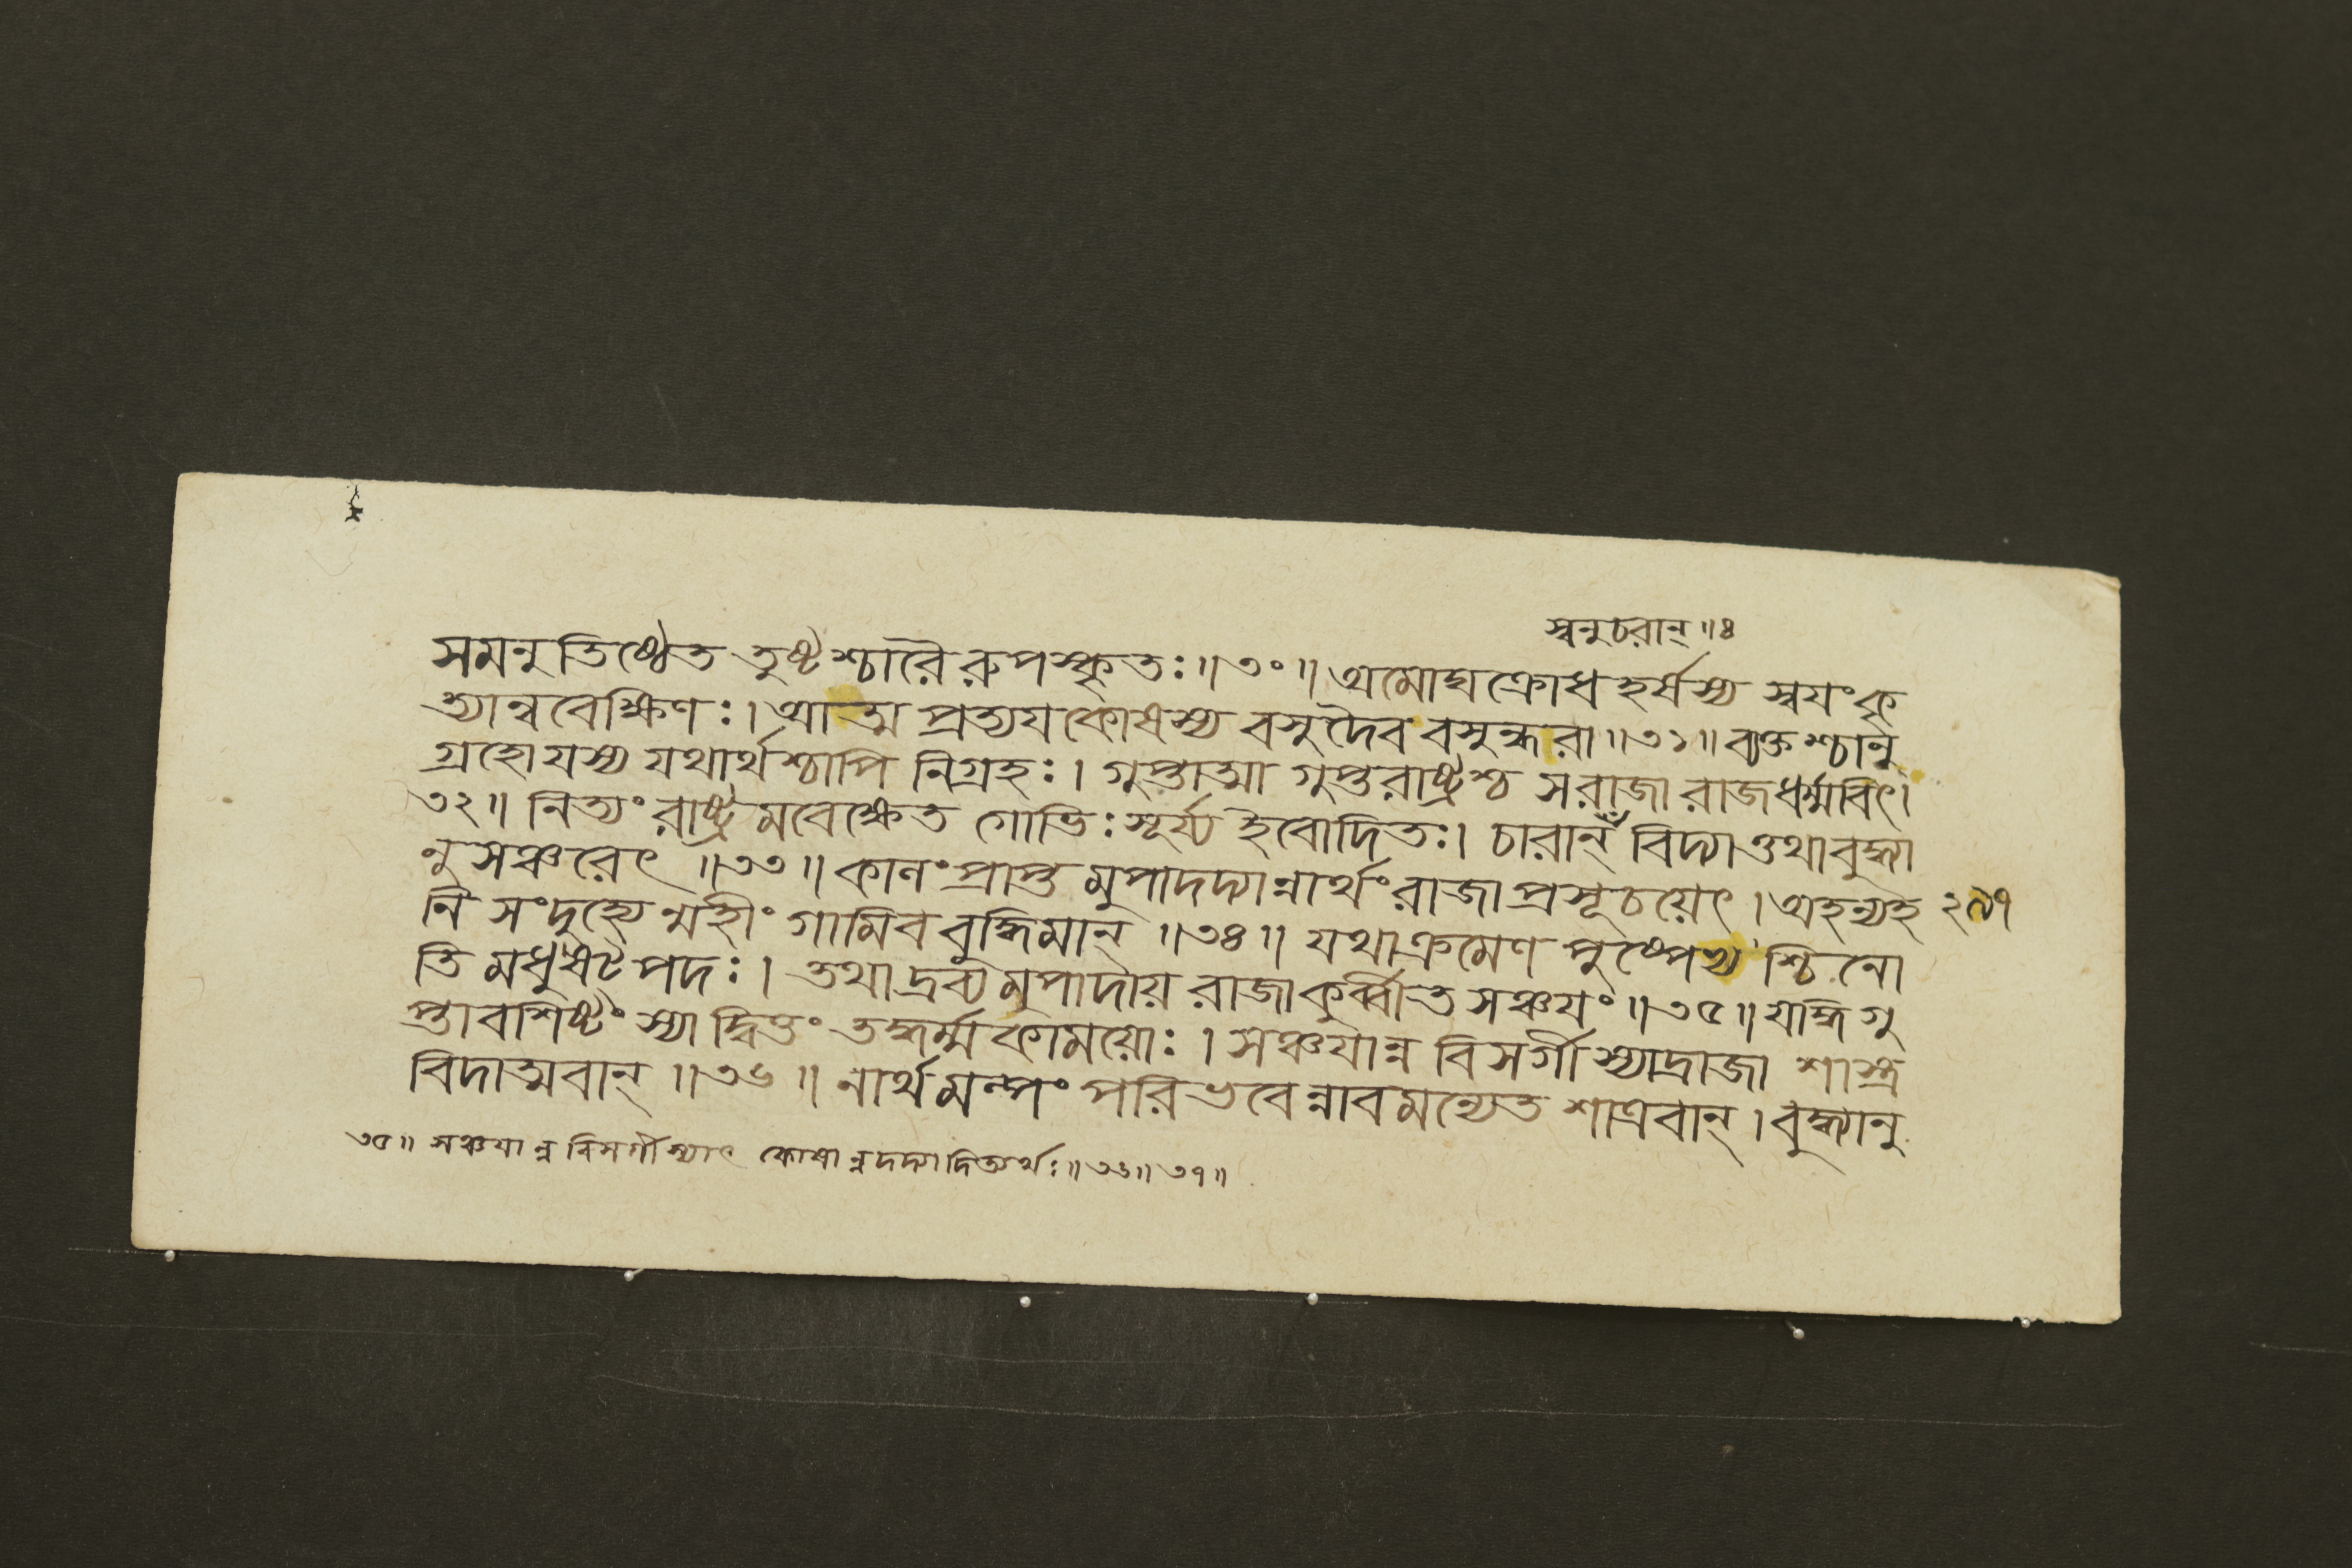 স্বনুচরান্॥৪
সমনুতিষ্ঠেত তুষ্টশ্চারৈরুপস্কৃতঃ॥৩০॥ অমোঘক্রোধহর্ষস্য স্বযংকৃ
ত্যান্ববেক্ষিণঃ। আত্মপ্রত্যযকোষস্য বসুদৈব বসুন্ধরা॥৩১॥ ব্যক্তশ্চানু
গ্রহোযস্য যথার্থশ্চাপি নিগ্রহঃ। গুপ্তাত্মা গুপ্তরাষ্ট্রশ্চ সরাজা রাজধর্ম্মবিৎ।
৩২॥ নিত্যং রাষ্ট্রমবেক্ষেত গোভিঃ সূর্য্য ইবোদিতঃ। চারান্ঁ বিদ্যাত্তথাবুদ্ধ্যা
নুসঞ্চরেৎ ॥৩৩॥ কালং প্রাপ্তমুপাদদ্যান্নার্থং রাজাপ্রসূচয়েৎ। অহন্যহ ২৯৭
নি সংদুহ্যেন্মহীং গামিব বুদ্ধিমান্ ॥৩৪॥ যথাক্রমেণ পুষ্পেভ্যশ্চিনো
তি মধুষট্পদঃ। তথাদ্রব্যমুপাদায় রাজাকুর্ব্বীত সঞ্চযং॥৩৫॥ যদ্ধিগু
প্তাবশিষ্টং স্যাদ্বিত্তং তদ্ধর্ম্মকাময়োঃ। সঞ্চযান্ন বিসর্গীস্যাদ্রাজা শাস্ত্র
বিদাত্মবান্ ॥৩৬॥ নার্থমল্পং পরিভবেন্নাবমন্যেত শাত্রবান্। বুদ্ধ্যানু
৩৫॥ সঞ্চযান্ন বিসর্গীস্যাৎ কোষান্নদদ্যাদিত্যর্থঃ॥৩৬॥৩৭॥